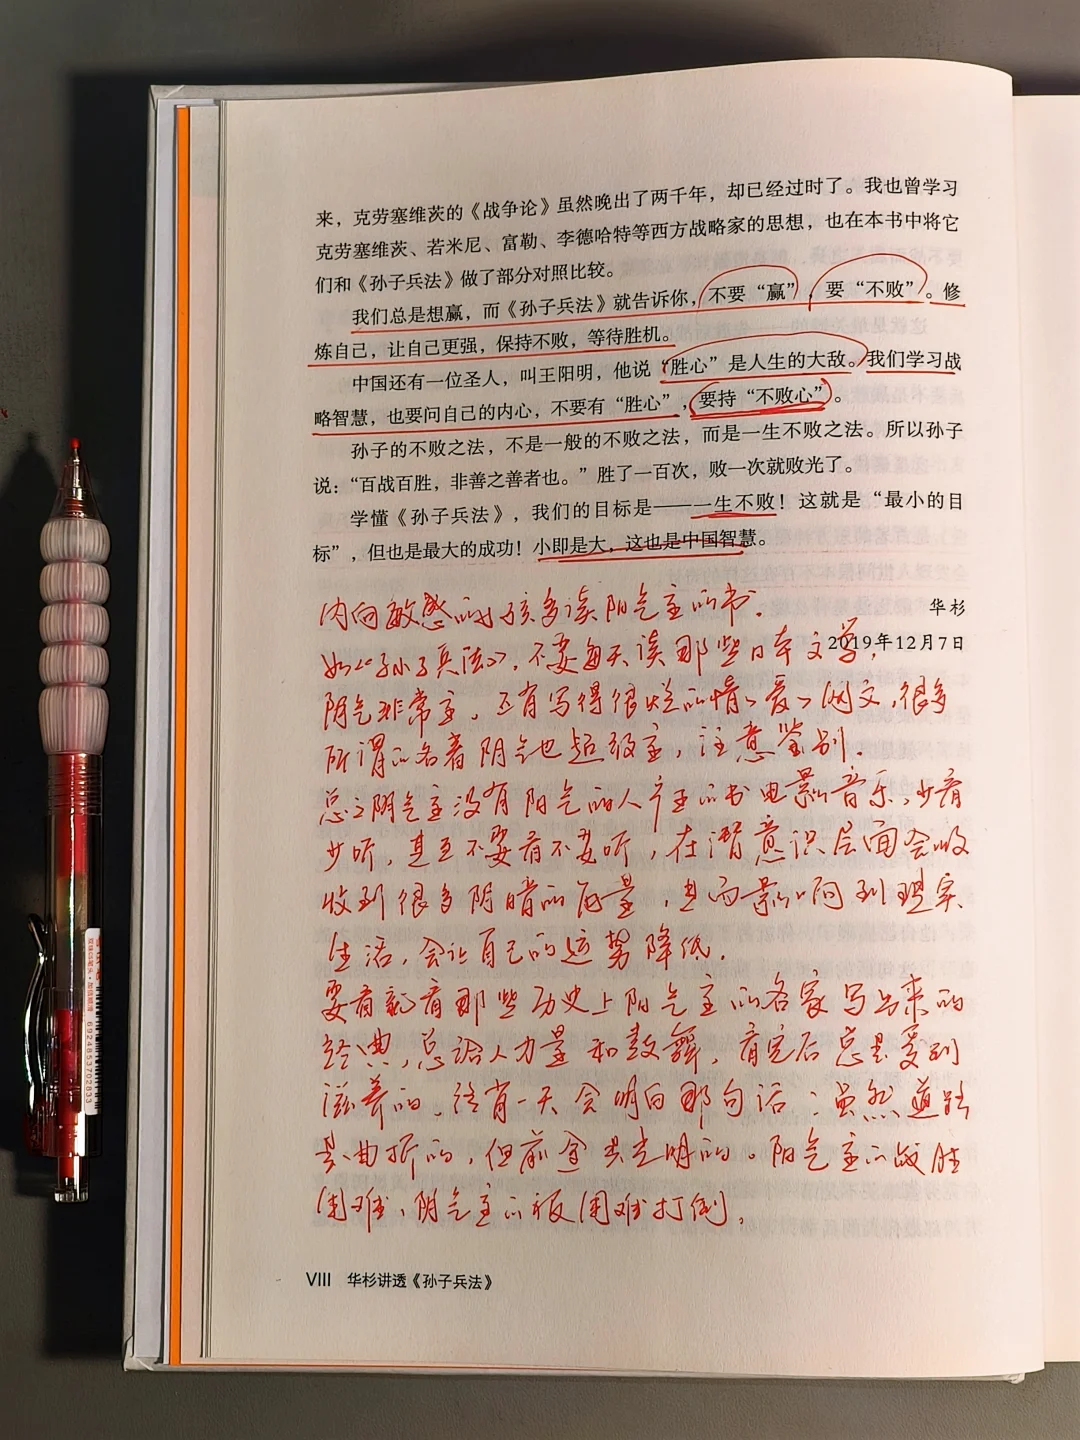 来，克劳塞维茨的《战争论》虽然晚出了两千年，却已经过时了。我也曾学习
克劳塞维茨、若米尼、富勒、李德哈特等西方战略家的思想，也在本书中将它
们和《孙子兵法》做了部分对照比较。
我们总是想赢，而《孙子兵法》就告诉你，不要“赢”，要“不败”。修
炼自己，让自己更强，保持不败，等待胜机。
中国还有一位圣人，叫王阳明，他说“胜心”是人生的大敌。我们学习战
略智慧，也要问自己的内心，不要有“胜心”，要持“不败心”。
孙子的不败之法，不是一般的不败之法，而是一生不败之法。所以孙子
说：“百战百胜，非善之善者也。”胜了一百次，败一次就败光了。
学懂《孙子兵法》，我们的目标是——一生不败！这就是“最小的目
标”，但也是最大的成功！小即是大，这也是中国智慧。
华杉
2019年12月7日
内向敏感的小孩多读阳气重的书.
如《孙子兵法》，不要每天读那些日本文学，
阴气非常重，还有写得很烂的情情爱爱网文，很多
所谓的名著阴气也超级重，注意鉴别.
总之阴气重没有阳气的人产出的书电影音乐，少看
少听，甚至不要看不要听，在潜意识层面会吸
收到很多阴暗的能量，进而影响到现实
生活，会让自己的运势降低.
要看就看那些历史上阳气重的名家写出来的
经典，总给人力量和鼓舞，看完后总是受到
滋养的，终有一天会明白那句话：虽然道路
是曲折的，但前途是光明的。阳气重的战胜
困难，阴气重的被困难打倒.
VIII 华杉讲透《孙子兵法》
6924853702833